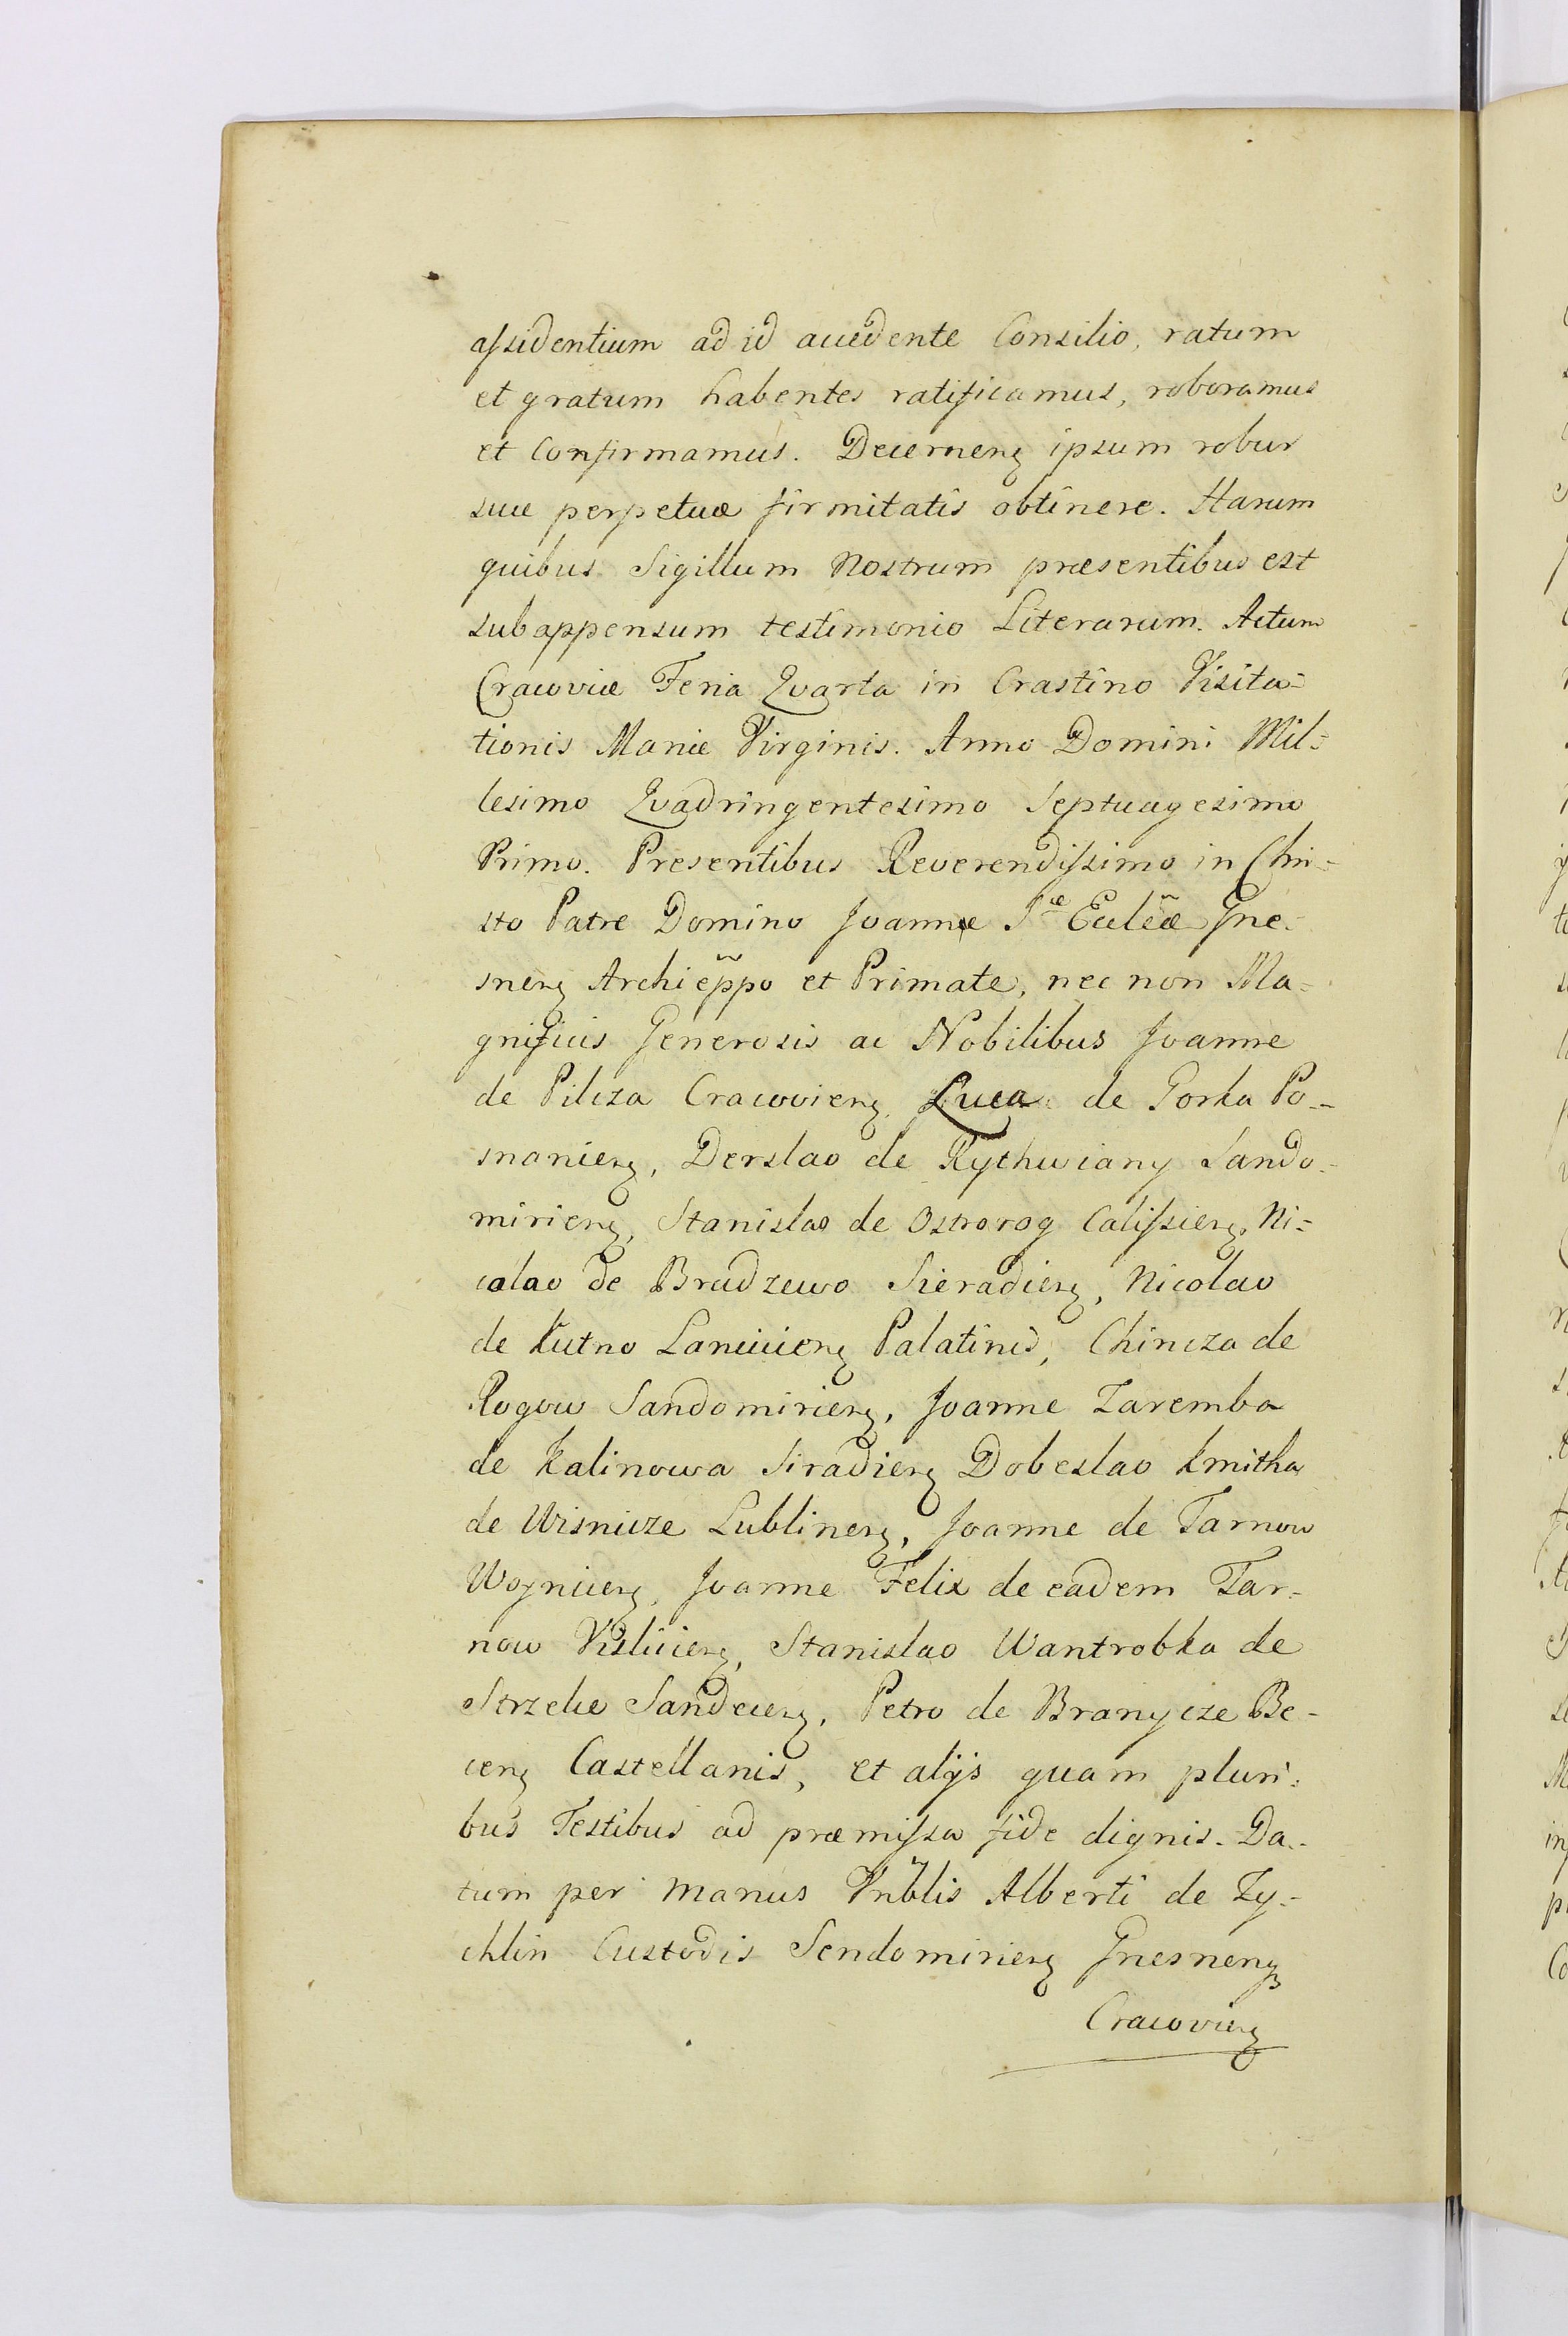 assidentium ad id accedente Consilio, ratum
et gratum habentes ratificamus, roboramus
et Confirmamus. Decernenꝫ ipsum robur
suæ perpetuæ firmitatis obtinere. Harum
quibus Sigillum Nostrum præsentibus est
subappensum testimonio Literarum. Actum
Cracoviæ Feria Quarta in Crastino Visita=
tionis Mariæ Virginis. Anno Domini Mil=
lesimo Quadringentesimo Septuagesimo
Primo. Presentibus Reverendissimo in Chri=
sto Patre Domino Joanne Sæ Eccleãe Gne=
snenꝫ Archiep̃po et Primate, nec non Ma=
gnificis Generosis ac Nobilibus Joanne
de Pilcza Cracovienꝫ Luca de Gorka Po=
snanienꝫ, Derslao de Rythwiany Sando=
mirienꝫ, Stanislao de Ostrorog Calissienꝫ, Ni=
colao de Brudzewo Sieradienꝫ, Nicolao
de Kutno Lancicienꝫ Palatinis, Chincza de
Rogow Sandomirienꝫ, Joanne Zaremba
de Kalinowa Siradienꝫ Dobeslao Kmitha
de Wisnicze Lublinenꝫ, Joanne de Tarnow
Woynicenꝫ, Joanne Felix de eadem Tar=
now Vislicienꝫ, Stanislao Wantrobka de
Strzelce Sandecenꝫ, Petro de Branycze Be=
cenꝫ Castellanis, et alÿs quam pluri=
bus Testibus ad præmissa fide dignis. Da=
tum per manus Vnb̃lis Alberti de Zy=
chlin Custodis Sendomirienꝫ Gnesnenꝫ
Cracovienꝫ